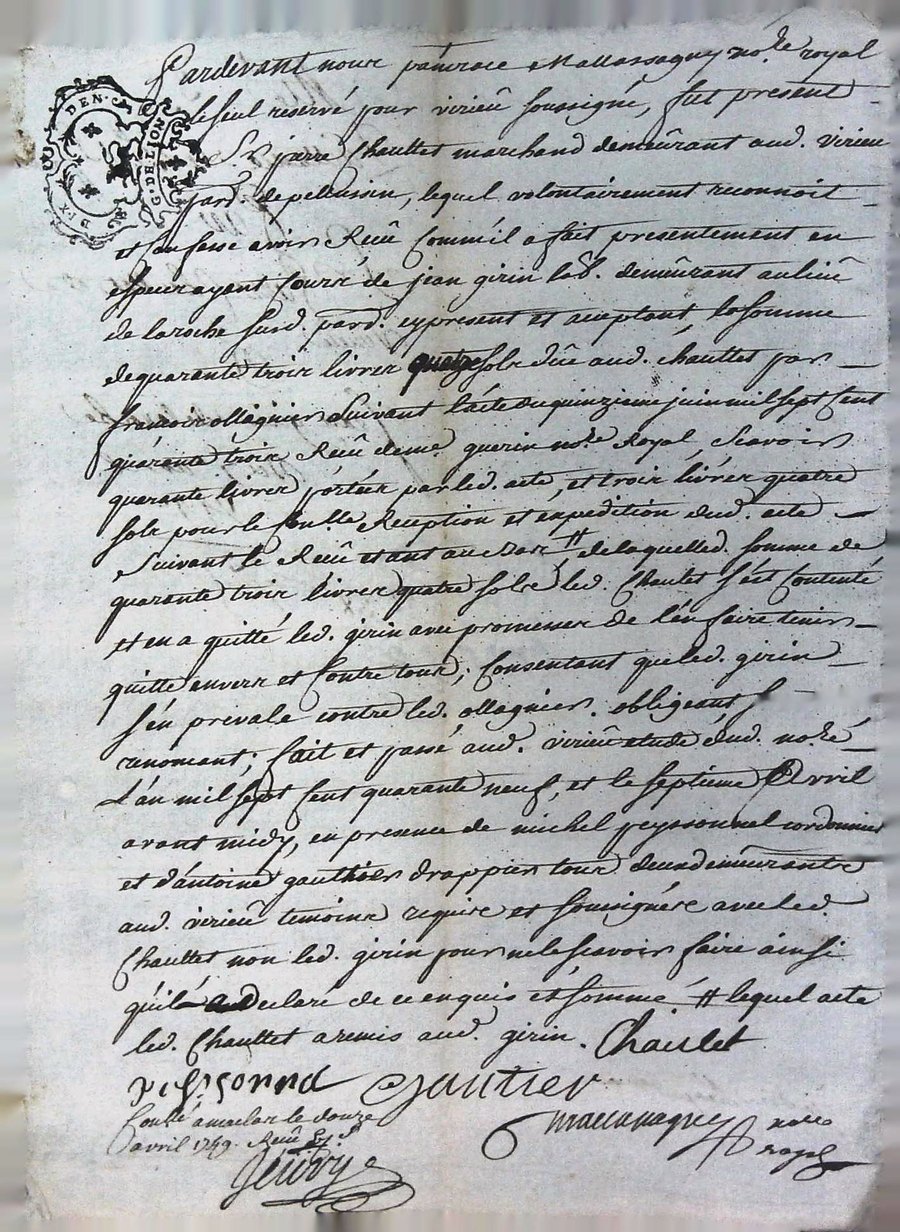 Pardevant nous pancrace Mallassagny no.re royal
le seul reservé pour virieu soussigné, fut present
Sr. pierre Chaullet marchand demeurant aud. virieu
par.d de pelussin, lequel volontairement reconnoit
et confesse avoir Receu Comm'il a fait presentement en
especes ayant cours de jean girin lab.r demeurant au lieu
de la roche susd. par.d. cy present et aceptant, la somme
de quarante trois livres quatre sols due aud. chaullet par
francois ollagnier suivant l'acte du quinzieme juin mil sept Cent
quarante trois Receu de me. guerin no.re Royal, Scavoir
quarante livres portées par led. acte, et trois livres quatre
sols pour le Conlle Reception et expedition dud. acte
suivant le Receu etant au bas # de laquelled. somme de
quarante trois livres quatre sols led. Chaulet s'est Contenté
et en a quitté led. girin avec promesses de l'en faire tenir
quitte envers et Contre tous; Consentant que led. girin
s'en prevale contre led. ollagnier. obligeant,
renoncant; fait et passé aud. virieu etude dud. no.re
L'an mil sept Cent quarante neuf, et le septieme Avril
avant midy, en presence de michel peyssonnel cordonnier
et d'antoine gauthier drappier tous deux demeurants
aud. virieu temoins requis et soussignés avec led.
Chaullet non led. girin pour ne le scavoir faire ainsi
qu'il a Declaré de ce enquis et sommé # lequel acte
led. Chaullet a remis aud. girin. Chaulet
peyssonnel Gautier
Conllé a maclas le douze
avril 1749. Receu
Mallassagny no.re
royal
DEN.
G. DE LION